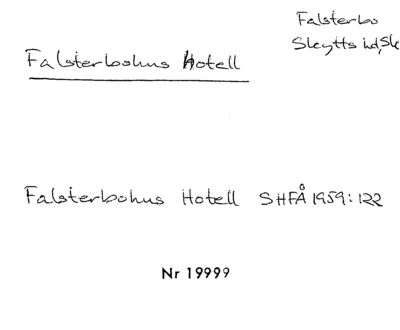 Falsterbo
Skytts hd, Sk
Falsterbohus Hotell
Falsterbohus Hotell SHFÅ 1959:122
Nr 19999